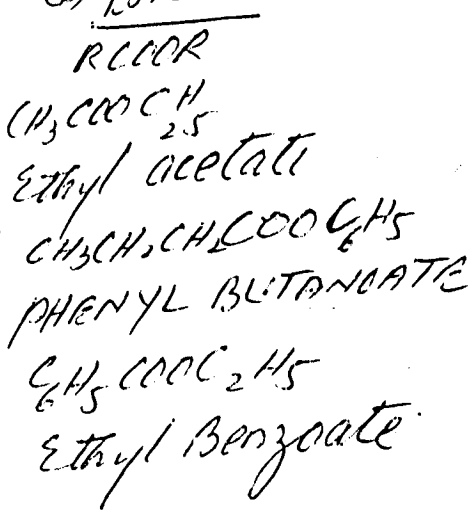 RCOOR
CH3COOC2H5
Ethyl acetate
CH3CH2CH2COOC6H5
PHENYL BUTANOATE
C6H5COOC2H5
Ethyl Benzoate